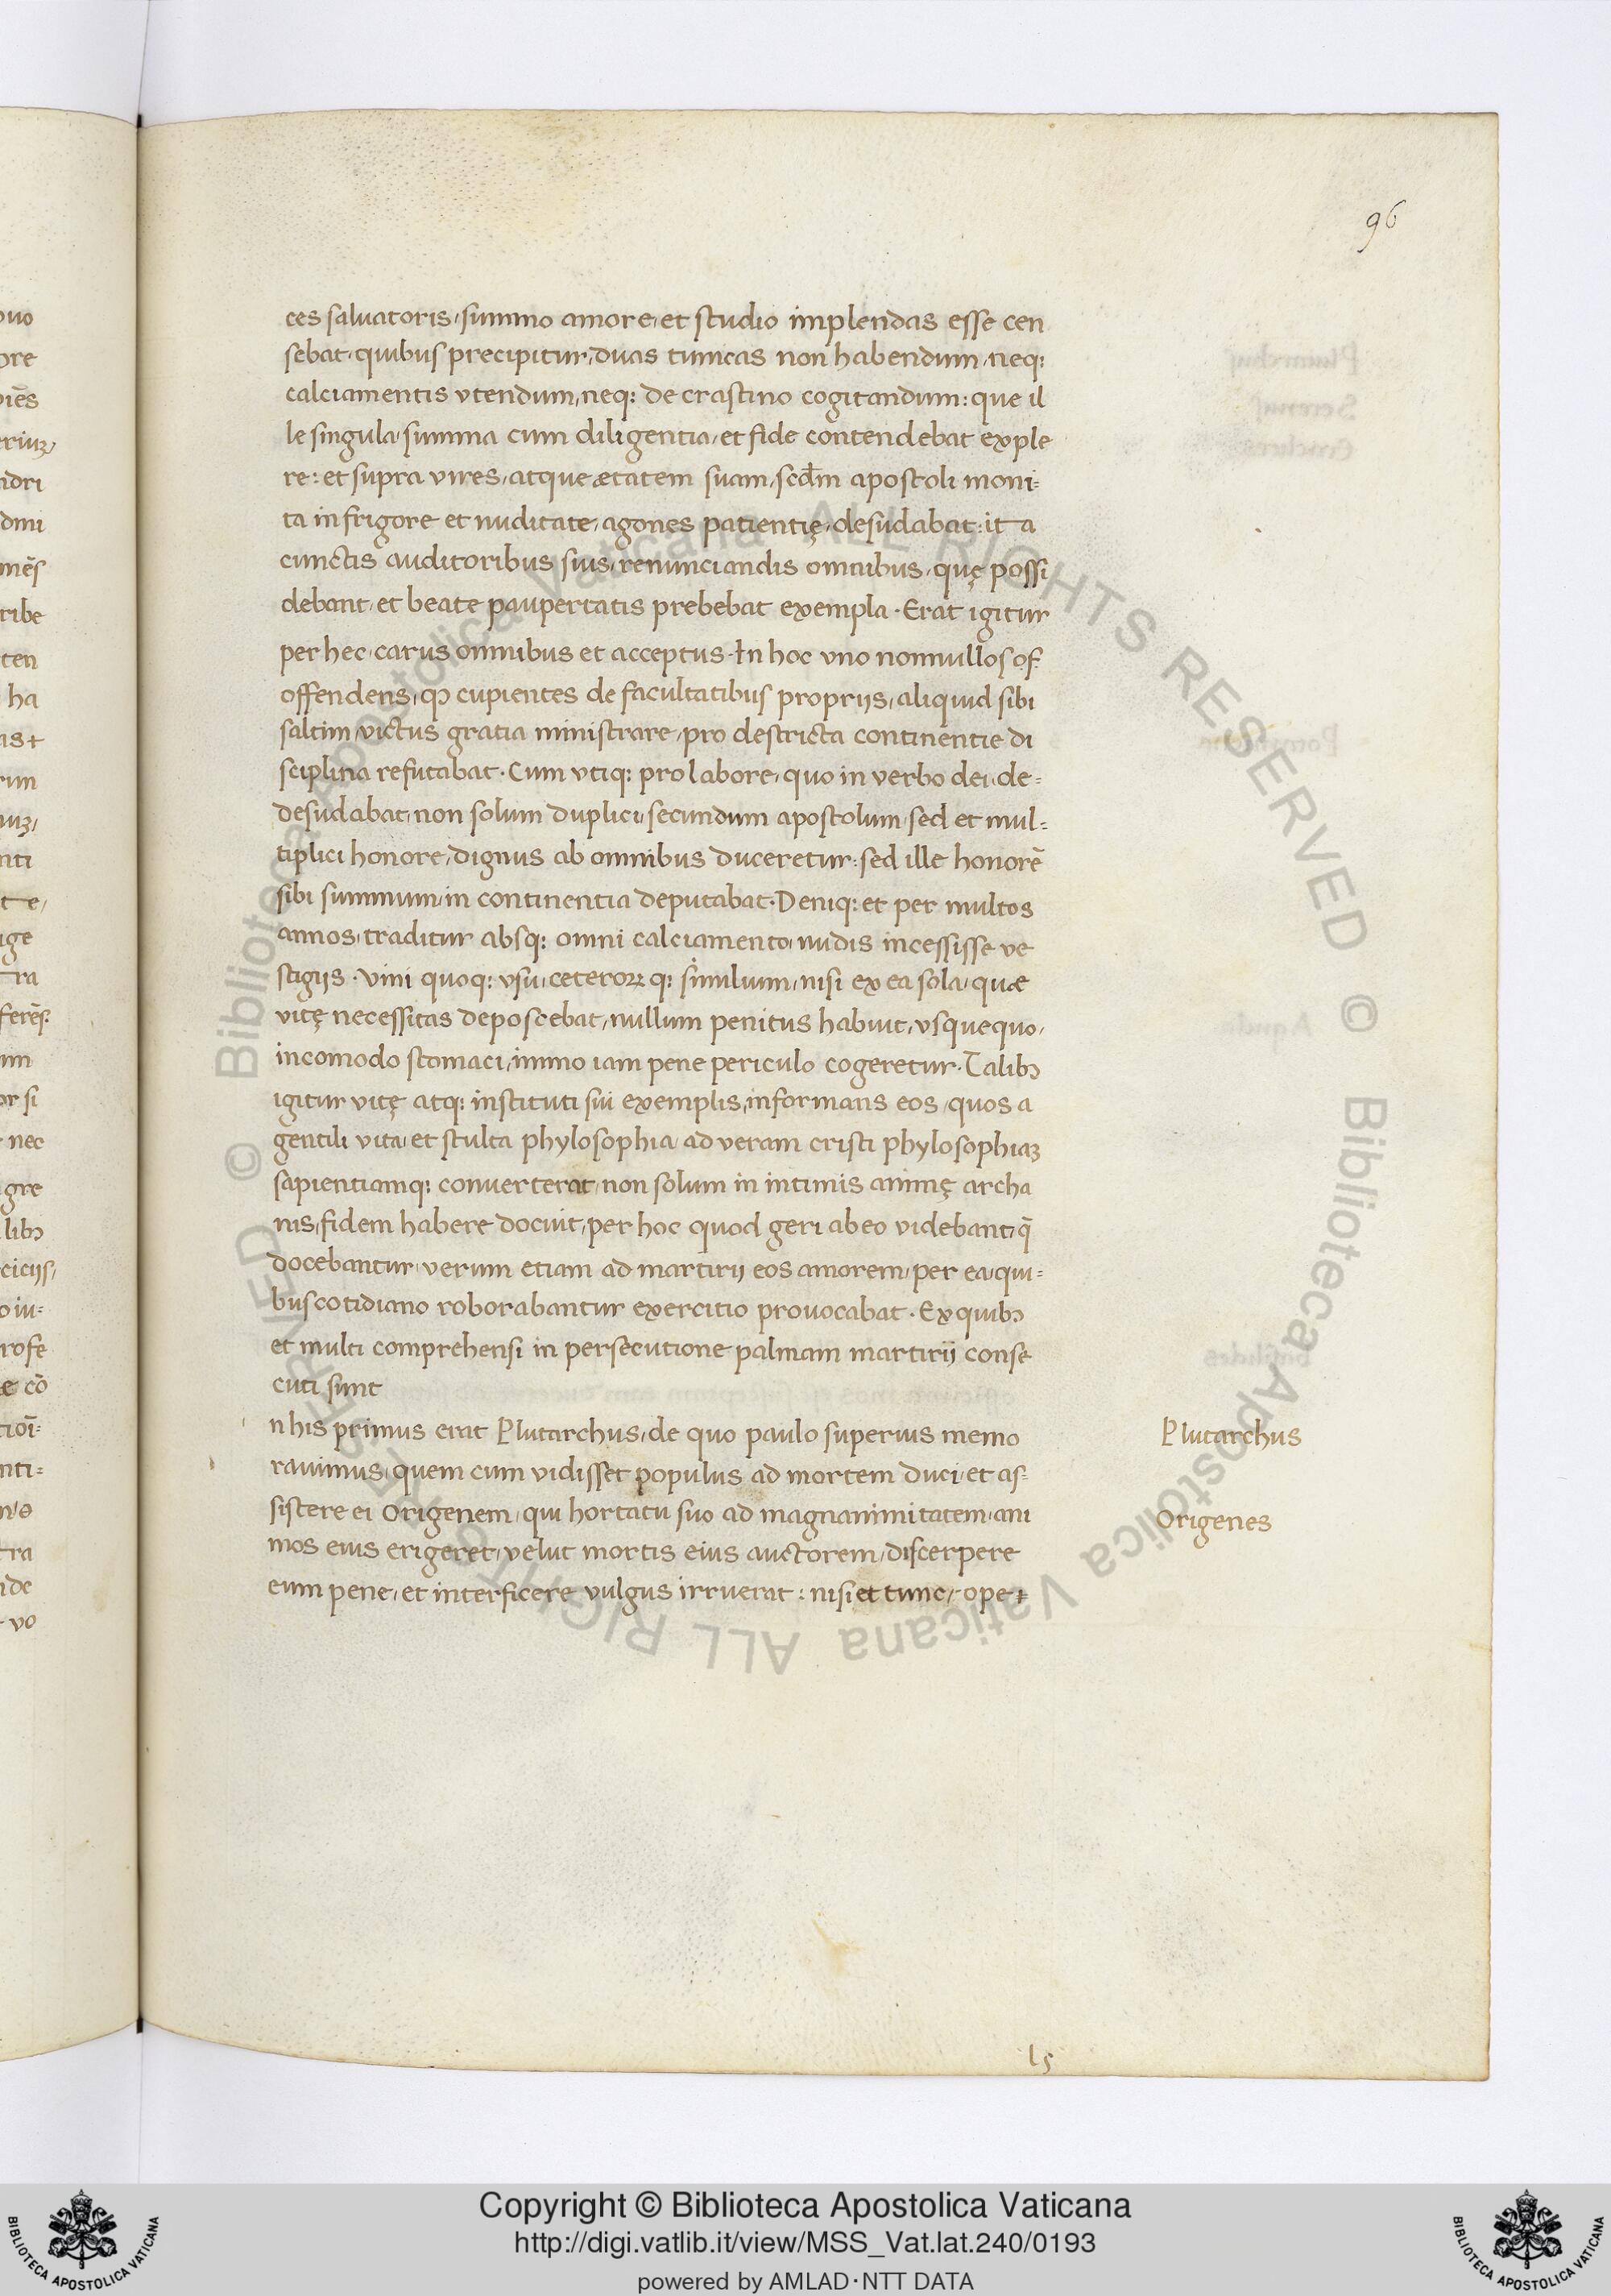 96
ces saluatoris, summo amore, et studio implendas esse cen
sebat, quibus precipitur, duas tunicas non habendum, neq:
calciamentis vtendum, neq: de crastino cogitandum: que il
le singula, summa cum diligentia, et fide contendebat exple
re: et supra vires, atque ætatem suam, scd̄m apostoli moni-
ta in frigore et nuditate, agones patientię, desudabat: ita
cunctis auditoribus suis, renunciandis omnibus, quę possi
debant, et beate paupertatis prebebat exempla. Erat igitur
per hec, carus omnibus et acceptus. In hoc vno nonnullos of
offendens, qꝫ cupientes de facultatibus proprijs, aliquid sibi
saltim, victus gratia ministrare, pro destricta continentie di
sciplina refutabat. Cum vtiq: pro labore, quo in verbo dei, de-
desudabat, non solum duplici, secundum apostolum, sed et mul-
tiplici honore, dignus ab omnibus duceretur: sed ille honorē
sibi summum, in continentia deputabat. Deniq: et per multos
annos, traditur absq: omni calciamento, nudis incessisse ve
stigijs. Vini quoq: vsu, ceteroꝝ q: similium, nisi ex ea sola, quæ
vitę necessitas deposcebat, nullum penitus habuit, vsquequo,
incomodo stomaci, immo iam pene periculo cogeretur. Talibꝫ
igitur vitę atq: instituti sui exemplis, informans eos, quos a
gentili vita, et stulta phylosophia, ad veram cristi phylosophiaꝫ
sapientiamq: conuerterat, non solum in intimis animę archa
nis, fidem habere docuit, per hoc quod geri ab eo videbant, q̄
docebantur, verum etiam ad martirij eos amorem, per ea, qui-
bus cotidiano roborabantur exercitio prouocabat. Ex quibꝫ
et multi comprehensi in persecutione palmam martirij conse
cuti sunt
n his primus erat Plutarchus, de quo paulo superius memo
rauimus, quem cum vidisset populus ad mortem duci, et as-
sistere ei Origenem, qui hortatu suo ad magnanimitatem, ani
mos eius erigeret, velut mortis eius auctorem, discerpere
eum pene, et interficere vulgus irruerat: nisi et tunc, ope
Plutarchus
Origenes
Copyright © Biblioteca Apostolica Vaticana
http://digi.vatlib.it/view/MSS_Vat.lat.240/0193
powered by AMLAD · NTT DATA
BIBLIOTECA APOSTOLICA VATICANA
BIBLIOTECA APOSTOLICA VATICANA
© Biblioteca Apostolica Vaticana ALL RIGHTS RESERVED
© Biblioteca Apostolica Vaticana ALL RIGHTS RESERVED